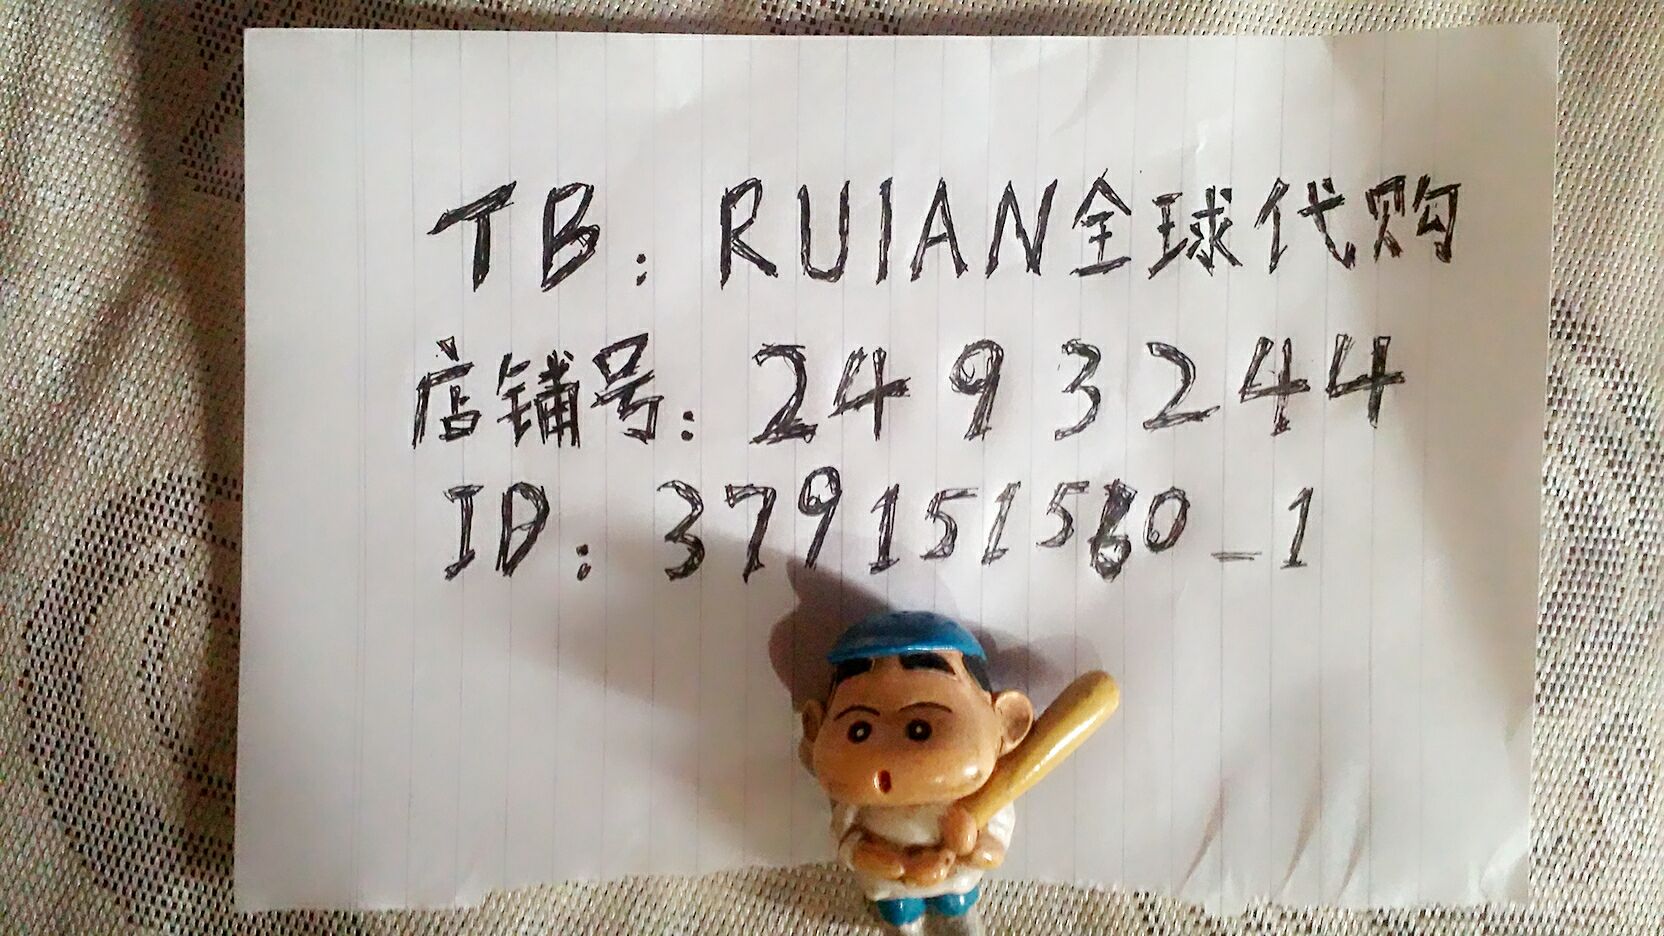 TB：RUIAN全球代购
店铺号：2493244
ID：379151560_1